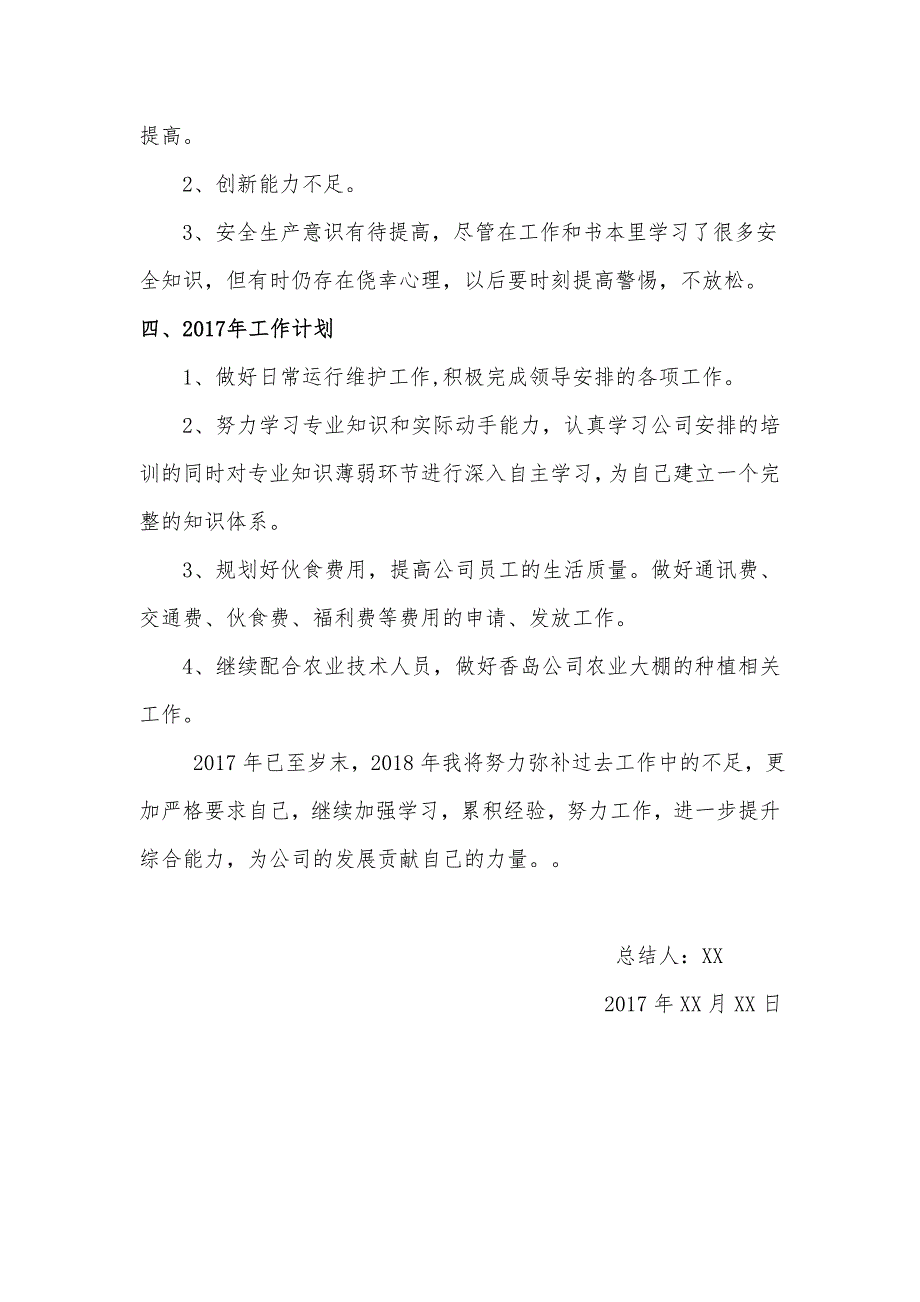 提高。
2、创新能力不足。
3、安全生产意识有待提高，尽管在工作和书本里学习了很多安
全知识，但有时仍存在侥幸心理，以后要时刻提高警惕，不放松。
四、2017年工作计划
1、做好日常运行维护工作,积极完成领导安排的各项工作。
2、努力学习专业知识和实际动手能力，认真学习公司安排的培
训的同时对专业知识薄弱环节进行深入自主学习，为自己建立一个完
整的知识体系。
3、规划好伙食费用，提高公司员工的生活质量。做好通讯费、
交通费、伙食费、福利费等费用的申请、发放工作。
4、继续配合农业技术人员，做好香岛公司农业大棚的种植相关
工作。
2017年已至岁末，2018年我将努力弥补过去工作中的不足，更
加严格要求自己，继续加强学习，累积经验，努力工作，进一步提升
综合能力，为公司的发展贡献自己的力量。。
总结人：XX
2017年XX月XX日